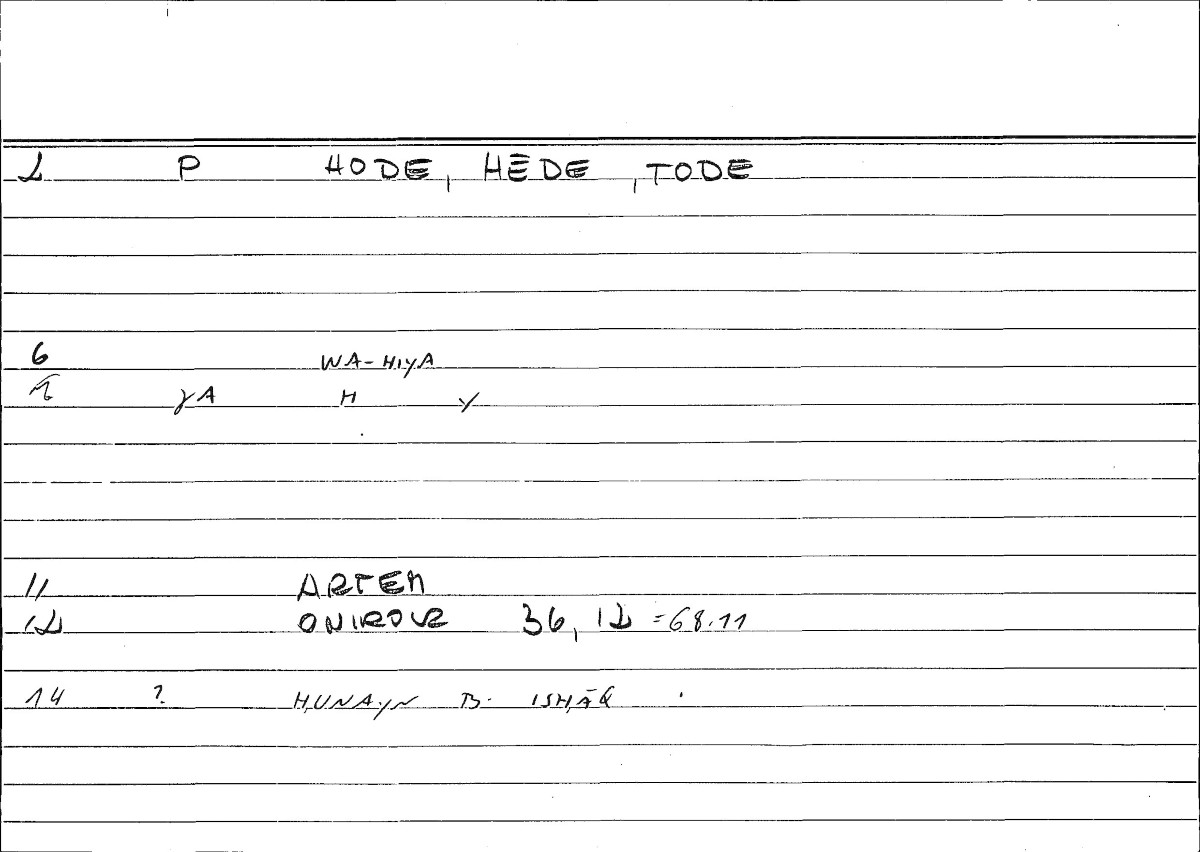 2 P HODE, HĒDE, TODE
6 WA-HIYA
7 γA H Y
11 ARTEM
12 ONIROCR 36, 12 =68.11
14 ? HUNAYN B. ISHĀQ